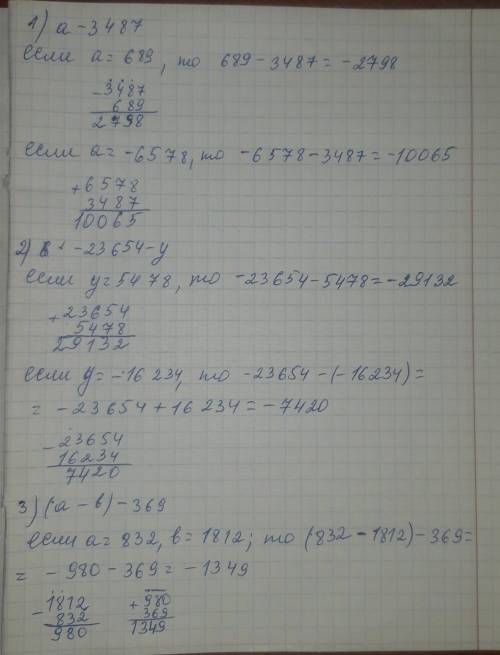 1) a - 3487
если a = 689, то 689 - 3487 = -2798
- 3487
689
2798
если a = -6578, то -6578 - 3487 = -10065
+ 6578
3487
10065
2) -23654 - y
если y = 5478, то -23654 - 5478 = -29132
+ 23654
5478
29132
если y = -16 234, то -23654 - (-16234) =
= -23654 + 16 234 = -7420
- 23654
16234
7420
3) (a - в) - 369
если a = 832, в = 1812; то (832 - 1812) - 369 =
= -980 - 369 = -1349
- 1812 + 980
832 369
980 1349